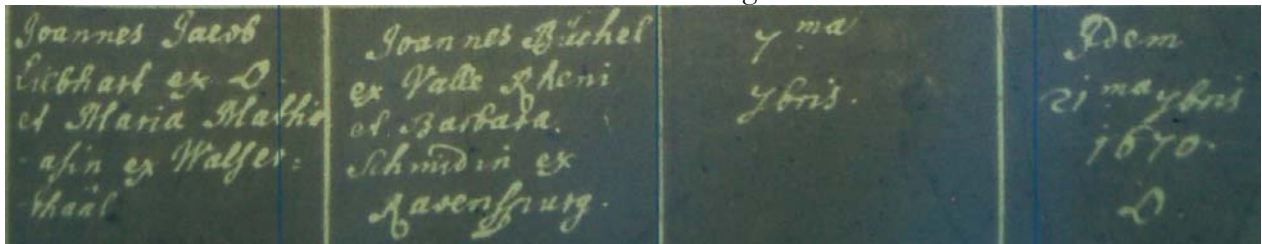 Joannes Jacob
Liebhart ex O.
et Maria Mathi-
asin ex Walser=
thaal
Joannes Büchel
ex Valle Rheni
et Barbara
Schmidin ex
Ravenspurg.
7 ma
7bris.
Idem
21 ma 7bris
1670.
O.